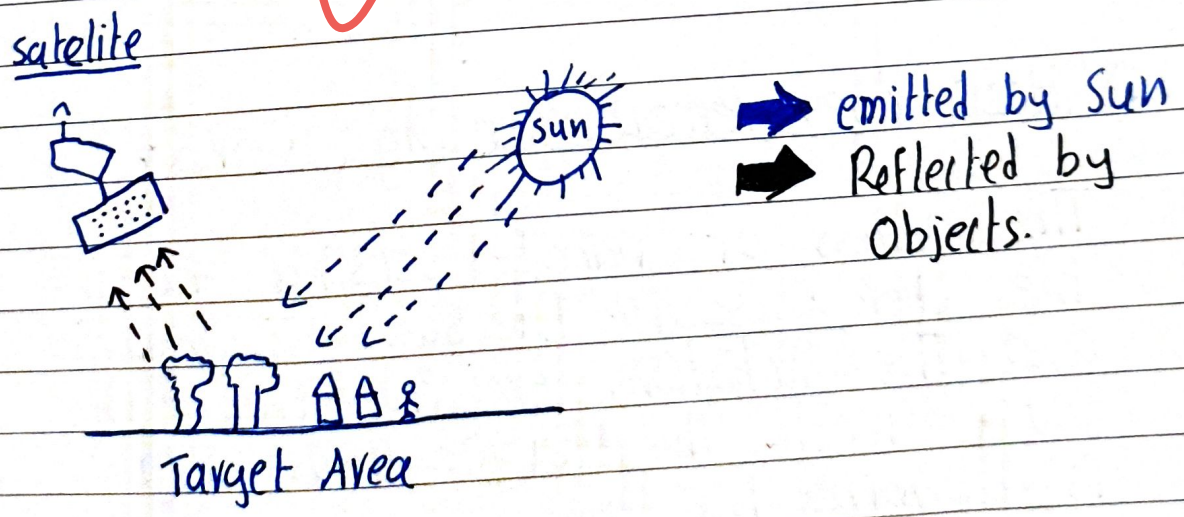 satelite
sun
emitted by Sun
Reflected by
Objects.
Target Area